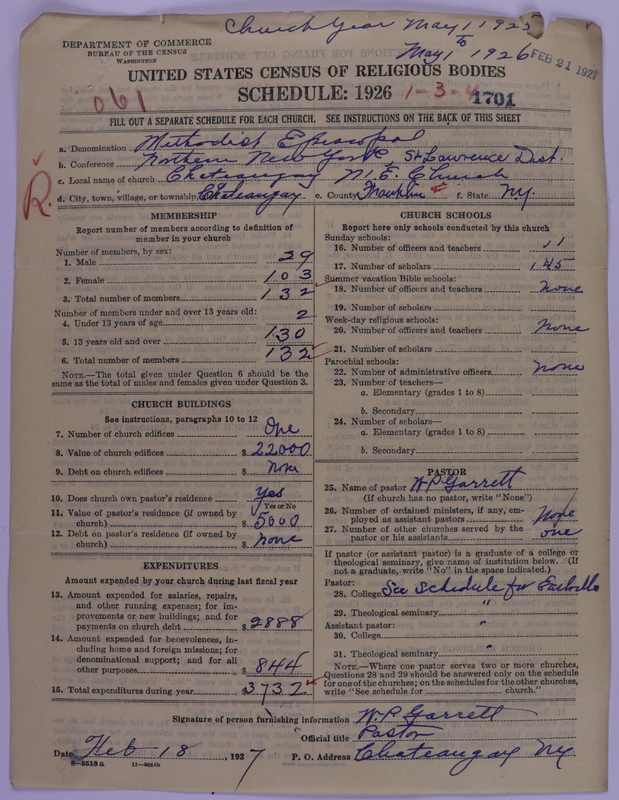 Church Year May 1 1925
to
May 1 1926
FEB 21 1927
DEPARTMENT OF COMMERCE
BUREAU OF THE CENSUS
WASHINGTON
UNITED STATES CENSUS OF RELIGIOUS BODIES
SCHEDULE: 1926
061
1-3-4
1701
FILL OUT A SEPARATE SCHEDULE FOR EACH CHURCH. SEE INSTRUCTIONS ON THE BACK OF THIS SHEET
a. Denomination Methodist Episcopal
b. Conference Northern New York, St Lawrence Dist.
c. Local name of church Chateaugay M. E. Church
d. City, town, village, or township Chateaugay e. County Franklin f. State N.Y.
R.
MEMBERSHIP
Report number of members according to definition of
member in your church
Number of members, by sex:
1. Male 29
2. Female 103
3. Total number of members 132
Number of members under and over 13 years old:
4. Under 13 years of age 2
5. 13 years old and over 130
6. Total number of members 132
NOTE.—The total given under Question 6 should be the
same as the total of males and females given under Question 3.
CHURCH BUILDINGS
See instructions, paragraphs 10 to 12
7. Number of church edifices One
8. Value of church edifices $ 22000
9. Debt on church edifices $ None
10. Does church own pastor's residence Yes
Yes or No
11. Value of pastor's residence (if owned by
church) $ 5000
12. Debt on pastor's residence (if owned by
church) $ none
EXPENDITURES
Amount expended by your church during last fiscal year
13. Amount expended for salaries, repairs,
and other running expenses; for im-
provements or new buildings; and for
payments on church debt $ 2888
14. Amount expended for benevolences, in-
cluding home and foreign missions; for
denominational support; and for all
other purposes $ 844
15. Total expenditures during year $ 3732
CHURCH SCHOOLS
Report here only schools conducted by this church
Sunday schools:
16. Number of officers and teachers 11
17. Number of scholars 145
Summer vacation Bible schools:
18. Number of officers and teachers None
19. Number of scholars
Week-day religious schools:
20. Number of officers and teachers None
21. Number of scholars
Parochial schools:
22. Number of administrative officers none
23. Number of teachers—
a. Elementary (grades 1 to 8)
b. Secondary
24. Number of scholars—
a. Elementary (grades 1 to 8)
b. Secondary
PASTOR
25. Name of pastor W P Garrett
(If church has no pastor, write "None")
26. Number of ordained ministers, if any, em-
ployed as assistant pastors None
27. Number of other churches served by the
pastor or his assistants one
If pastor (or assistant pastor) is a graduate of a college or
theological seminary, give name of institution below. (If
not a graduate, write "No" in the space indicated.)
Pastor:
28. College See Schedule for
29. Theological seminary "
Assistant pastor:
30. College "
31. Theological seminary
NOTE.—Where one pastor serves two or more churches,
Questions 28 and 29 should be answered only on the schedule
for one of the churches; on the schedules for the other churches,
write "See schedule for church."
Signature of person furnishing information W. P. Garrett
Official title Pastor
Date Feb 18, 1927 P. O. Address Chateaugay NY
8—5518 a